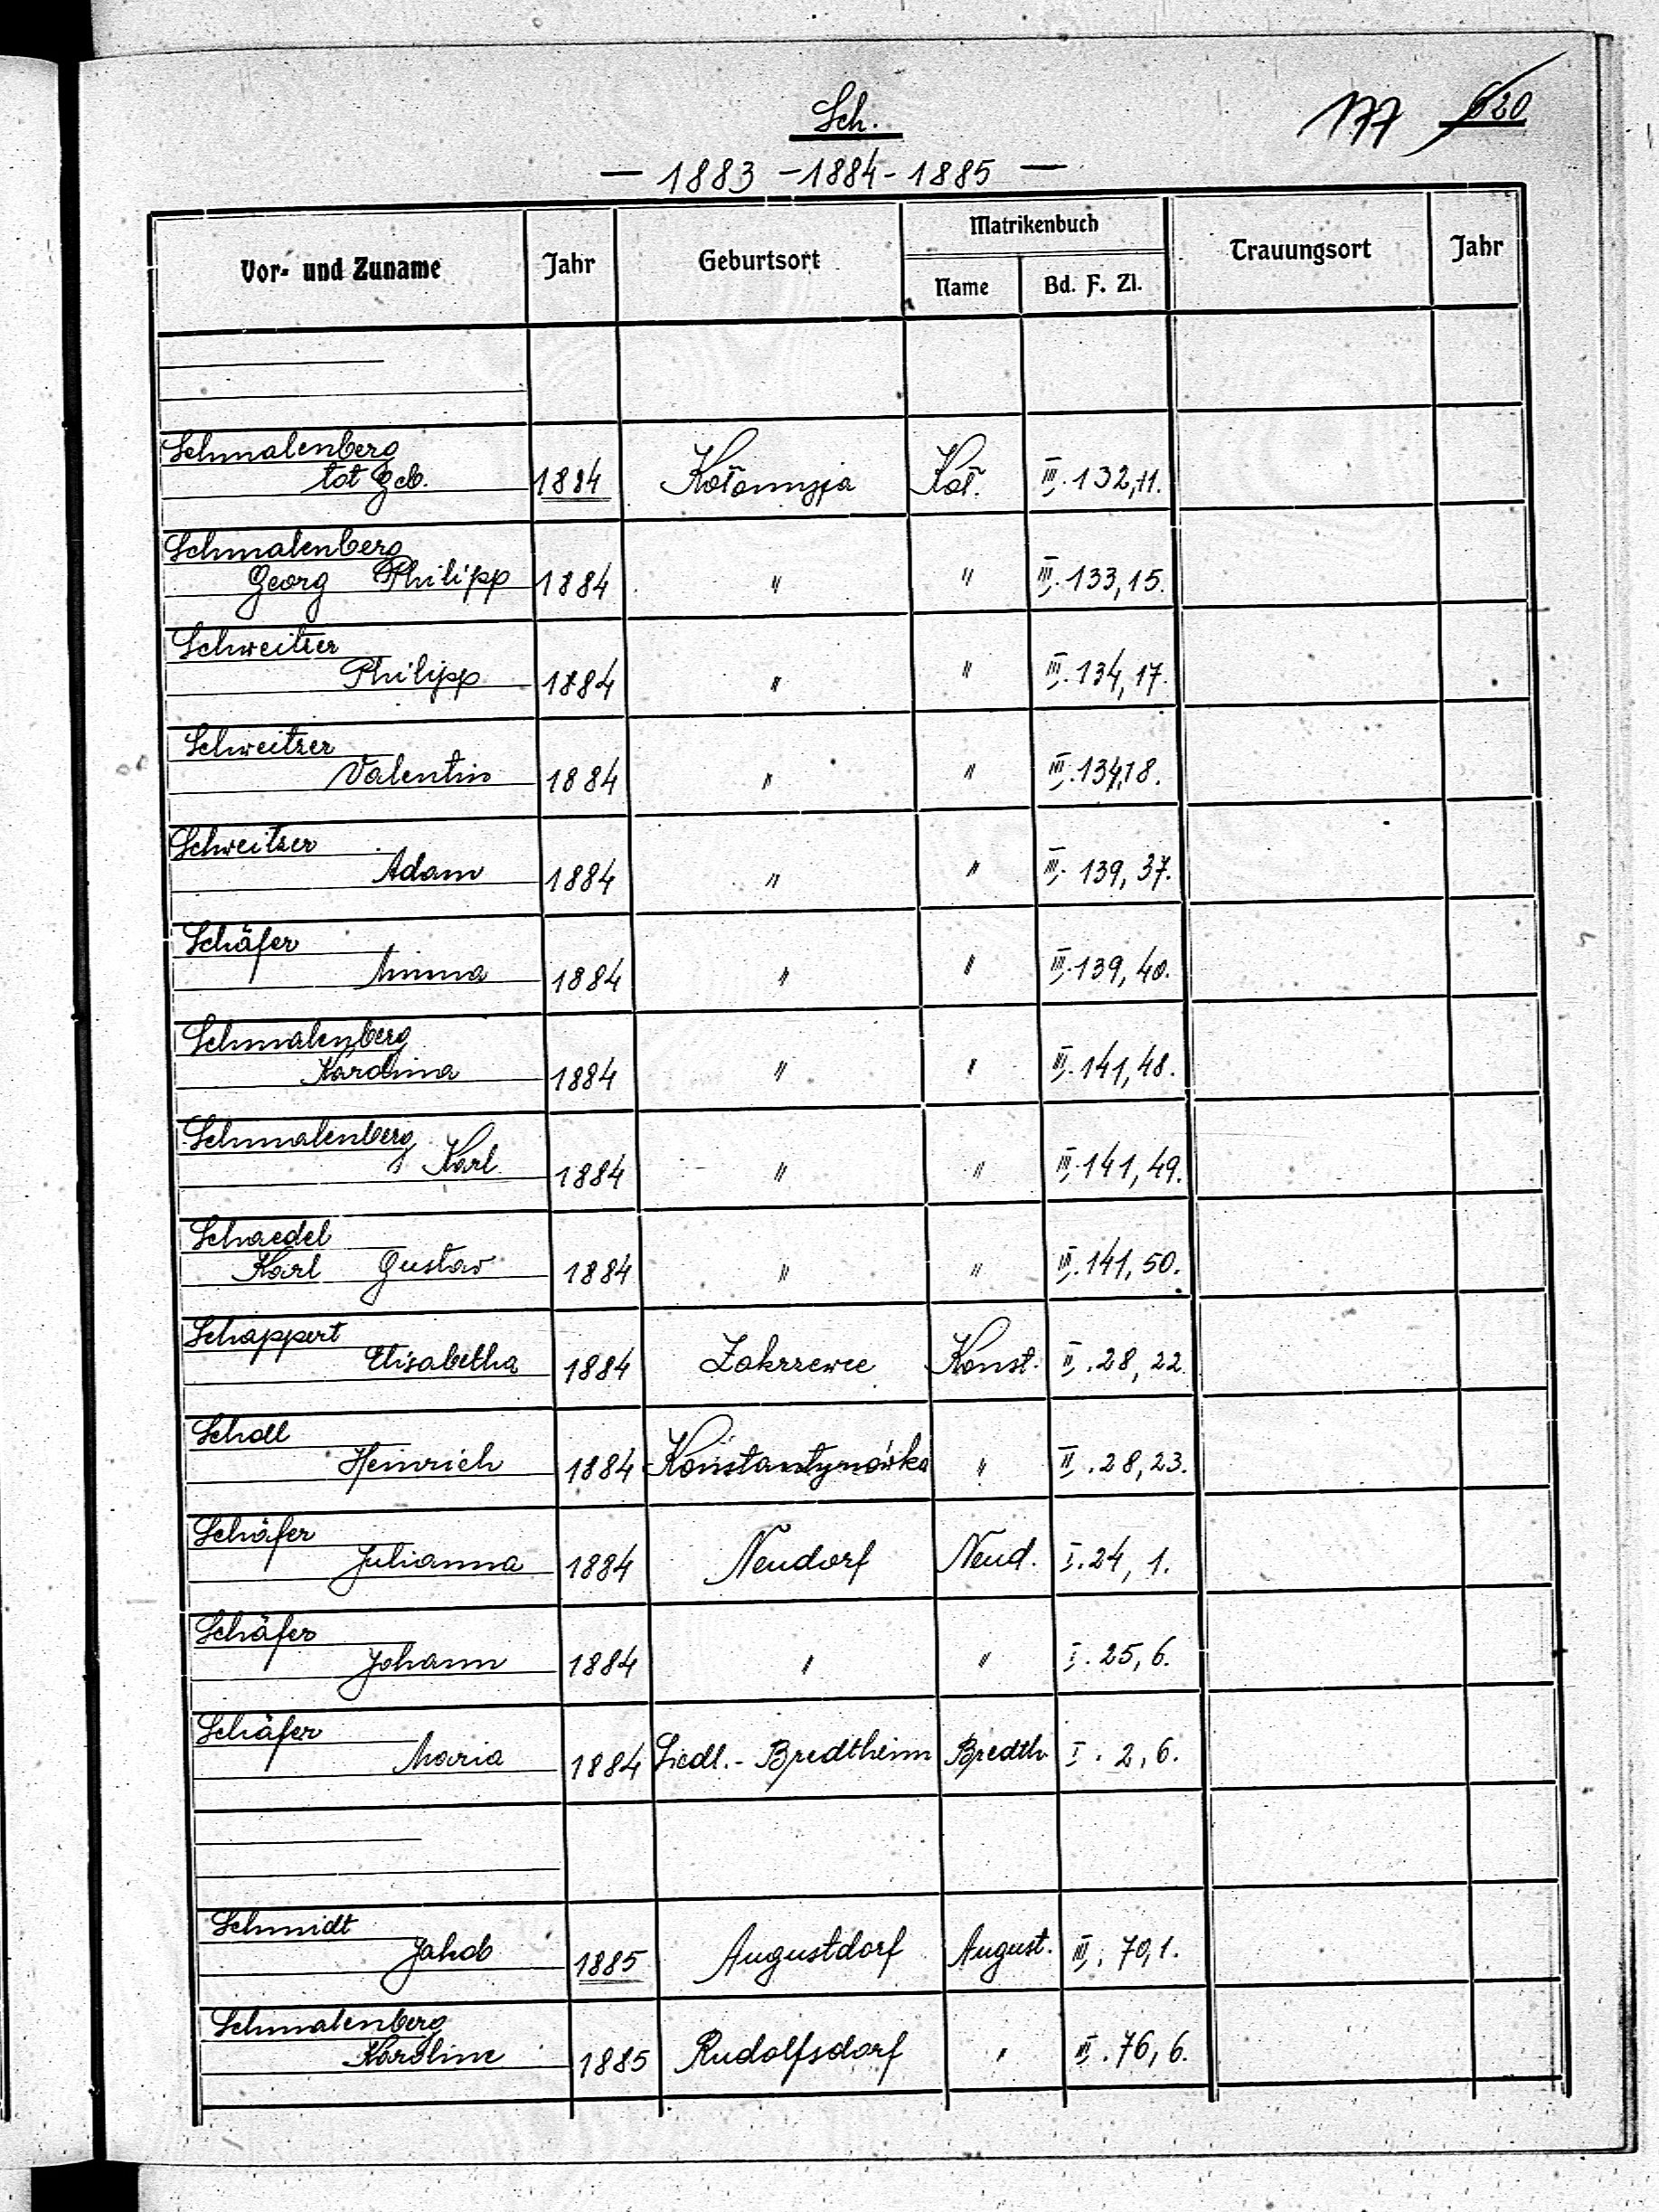 Sch.
177 620
— 1883 - 1884 - 1885 —
Vor- und Zuname Jahr Geburtsort Matrikenbuch Trauungsort Jahr
Name Bd. F. Zl.
Schmalenberg
tot Geb. 1884 Kołomyja Koł. III. 132, 11.
Schmalenberg
Georg Philipp 1884 " " III. 133, 15.
Schweitzer
Philipp 1884 " " III. 134, 17.
Schweitzer
Valentin 1884 " " III. 134, 18.
Schweitzer
Adam 1884 " " III. 139, 37.
Schäfer
Minna 1884 " " III. 139, 40.
Schmalenberg
Karolina 1884 " " III. 141, 48.
Schmalenberg
Karl 1884 " " III. 141, 49.
Schaedel
Karl Gustav 1884 " " III. 141, 50.
Schappert
Elisabetha 1884 Zakrzewce Konst. II. 28, 22.
Scholl
Heinrich 1884 Konstantynówka " II. 28, 23.
Schäfer
Julianna 1884 Neudorf Neud. I. 24, 1.
Schäfer
Johann 1884 " " I. 25, 6.
Schäfer
Maria 1884 Siedl.- Bredtheim Bredth. I. 2, 6.
Schmidt
Jakob 1885 Augustdorf August. III. 70, 1.
Schmalenberg
Karoline 1885 Rudolfsdorf " III. 76, 6.